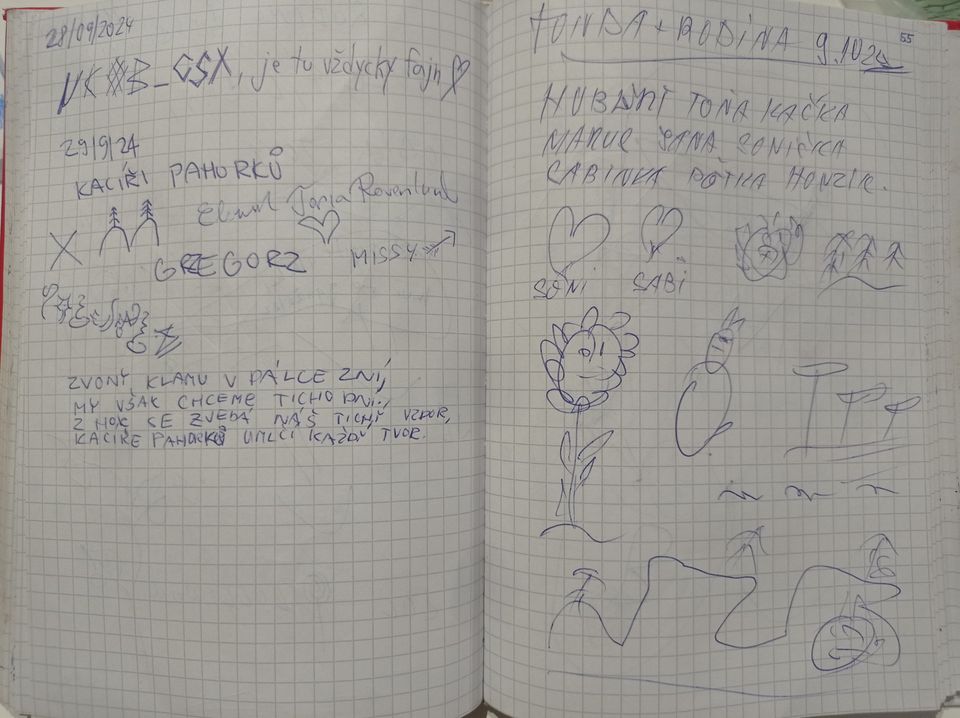 28/09/2024
je tu vždycky fajn
29/9/24
KACÍŘI PAHORKŮ
GRZEGORZ
MISSY
ZVONY KLAMU V DÁLCE ZNÍ,
MY VŠAK CHCEME TICHO DNÍ.,
Z HOR SE ZVEDÁ NÁŠ TICHÝ VZDOR,
KACÍŘE PAHORKŮ UMLČÍ KAŽDÝ TVOR.
55
TONDA + RODINA 9.10.24
TOŇA KAČKA
JANA SONIČKA
SABINKA HONZÍK.
SONI SABI